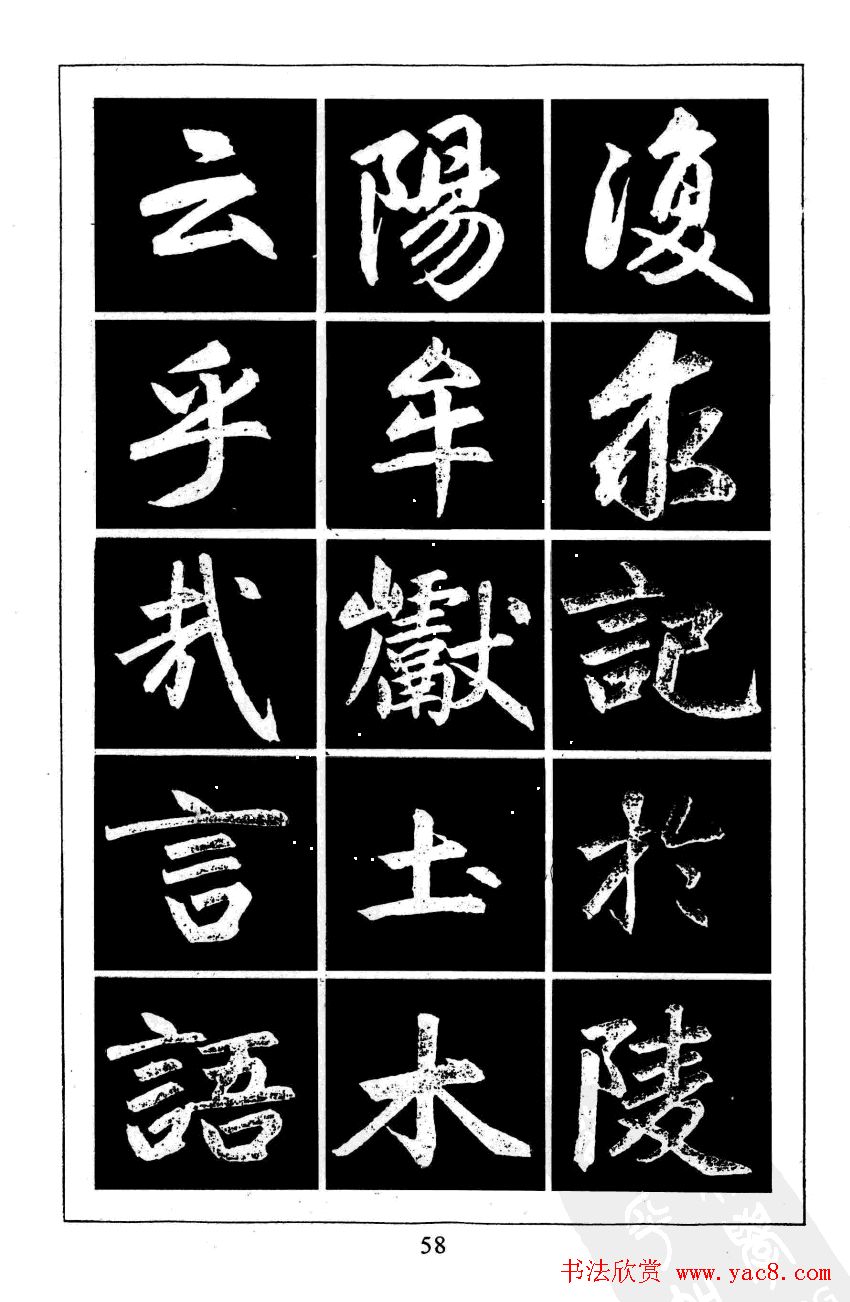 復求記於陵
陽牟巘土木
云乎哉言語
58
书法欣赏 www.yac8.com